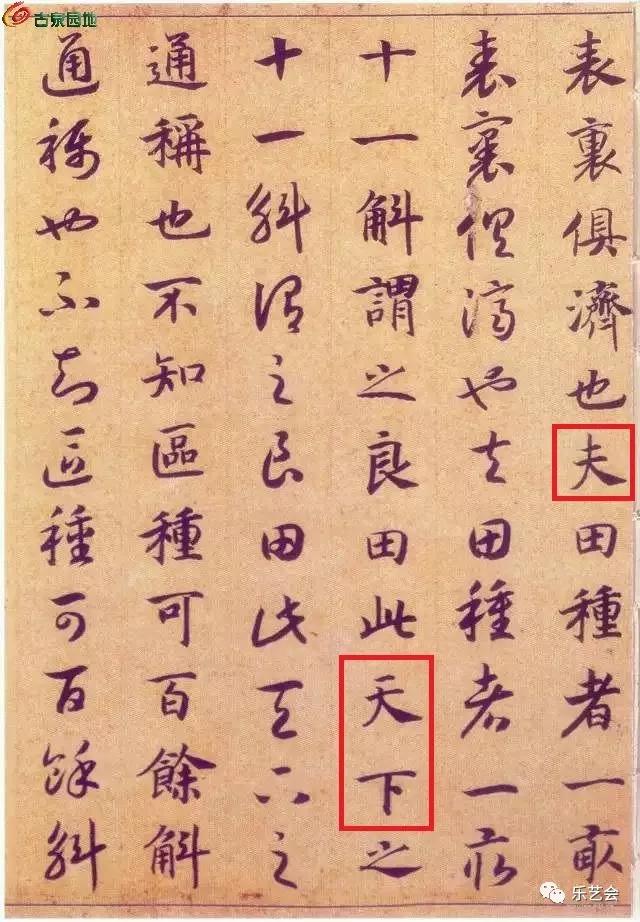 古泉园地
表裏俱濟也夫田種者一畝
表裏俱濟也夫田種者一畝
十一斛謂之良田此天下之
十一斛謂之良田此天下之
通稱也不知區種可百餘斛
通稱也不知區種可百餘斛
乐艺会